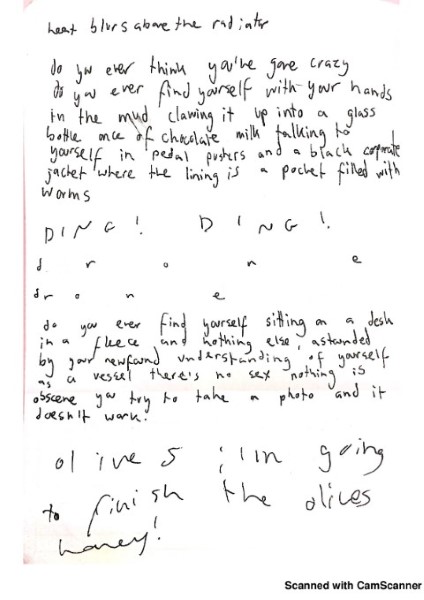 heat blurs above the radiator
do you ever think you've gone crazy
do you ever find yourself with your hands
in the mud clawing it up into a glass
bottle once of chocolate milk talking to
yourself in pedal pushers and a black corporate
jacket where the lining is a pocket filled with
worms
DING! DING!
d r o n e
dr o n e
do you ever find yourself sitting on a desk
in a fleece and nothing else, astounded
by your newfound understanding of yourself
as a vessel there's no sex nothing is
obscene you try to take a photo and it
doesn't work.
olives ; I'm going
to finish the olives
honey!
Scanned with CamScanner